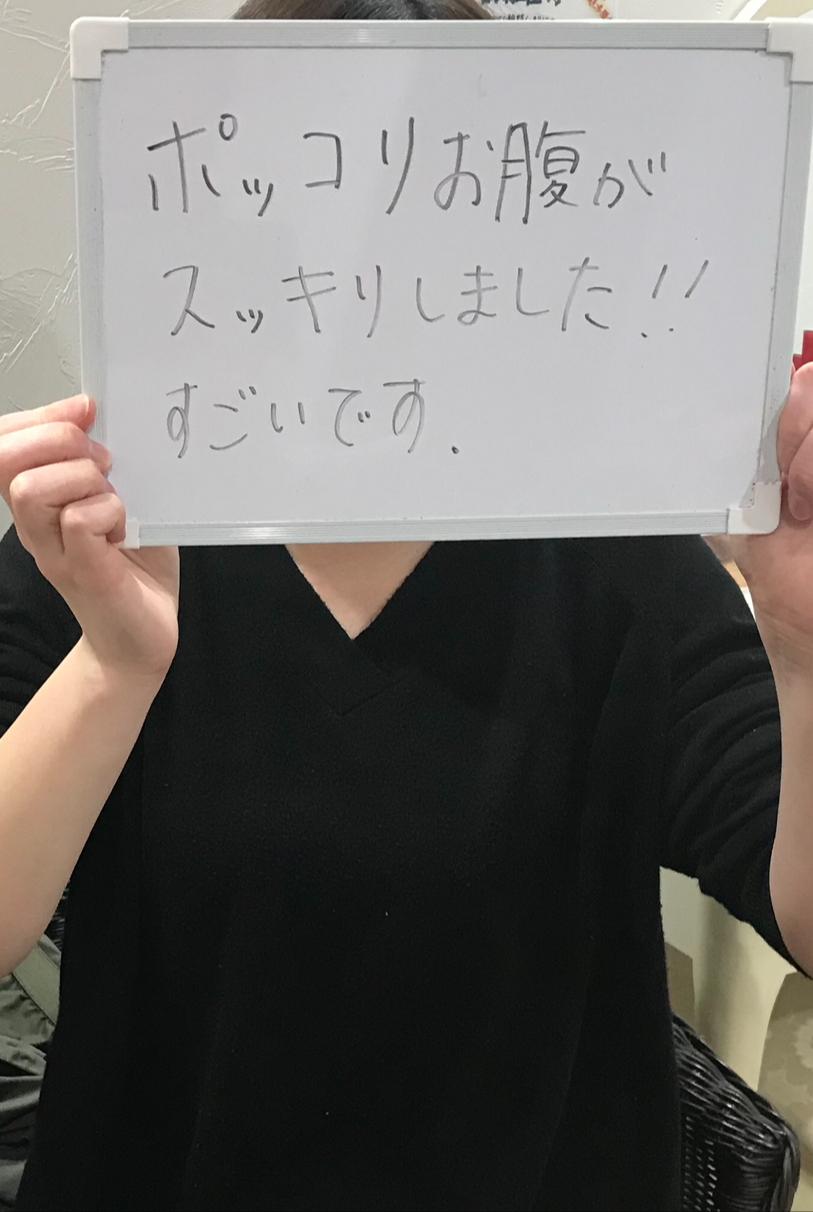 ポッコリお腹が
スッキリしました!!
すごいです.